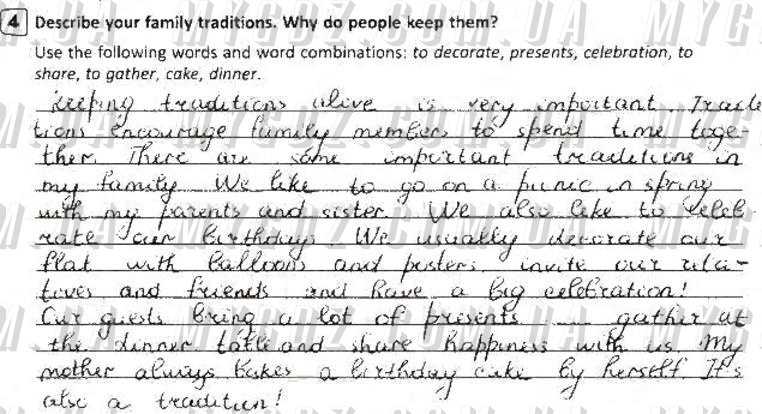 4 Describe your family traditions. Why do people keep them?
Use the following words and word combinations: to decorate, presents, celebration, to
share, to gather, cake, dinner.
Keeping traditions alive is very important. Tradi
tions encourage family members to spend time toge-
ther. There are some important traditions in
my family. We like to go on a picnic in spring
with my parents and sister. We also like to celeb-
rate our birthdays. We usually decorate our
flat with balloons and posters, invite our rela-
tives and friends and have a big celebration!
Our guests bring a lot of presents gather at
the dinner table and share happiness with us. My
mother always bakes a birthday cake by herself. It's
also a tradition!